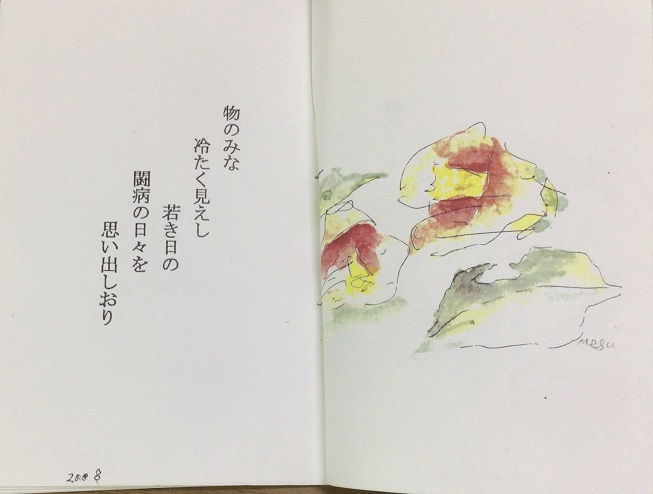 物のみな
冷たく見えし
若き日の
闘病の日々を
思い出しおり
2008
Megu